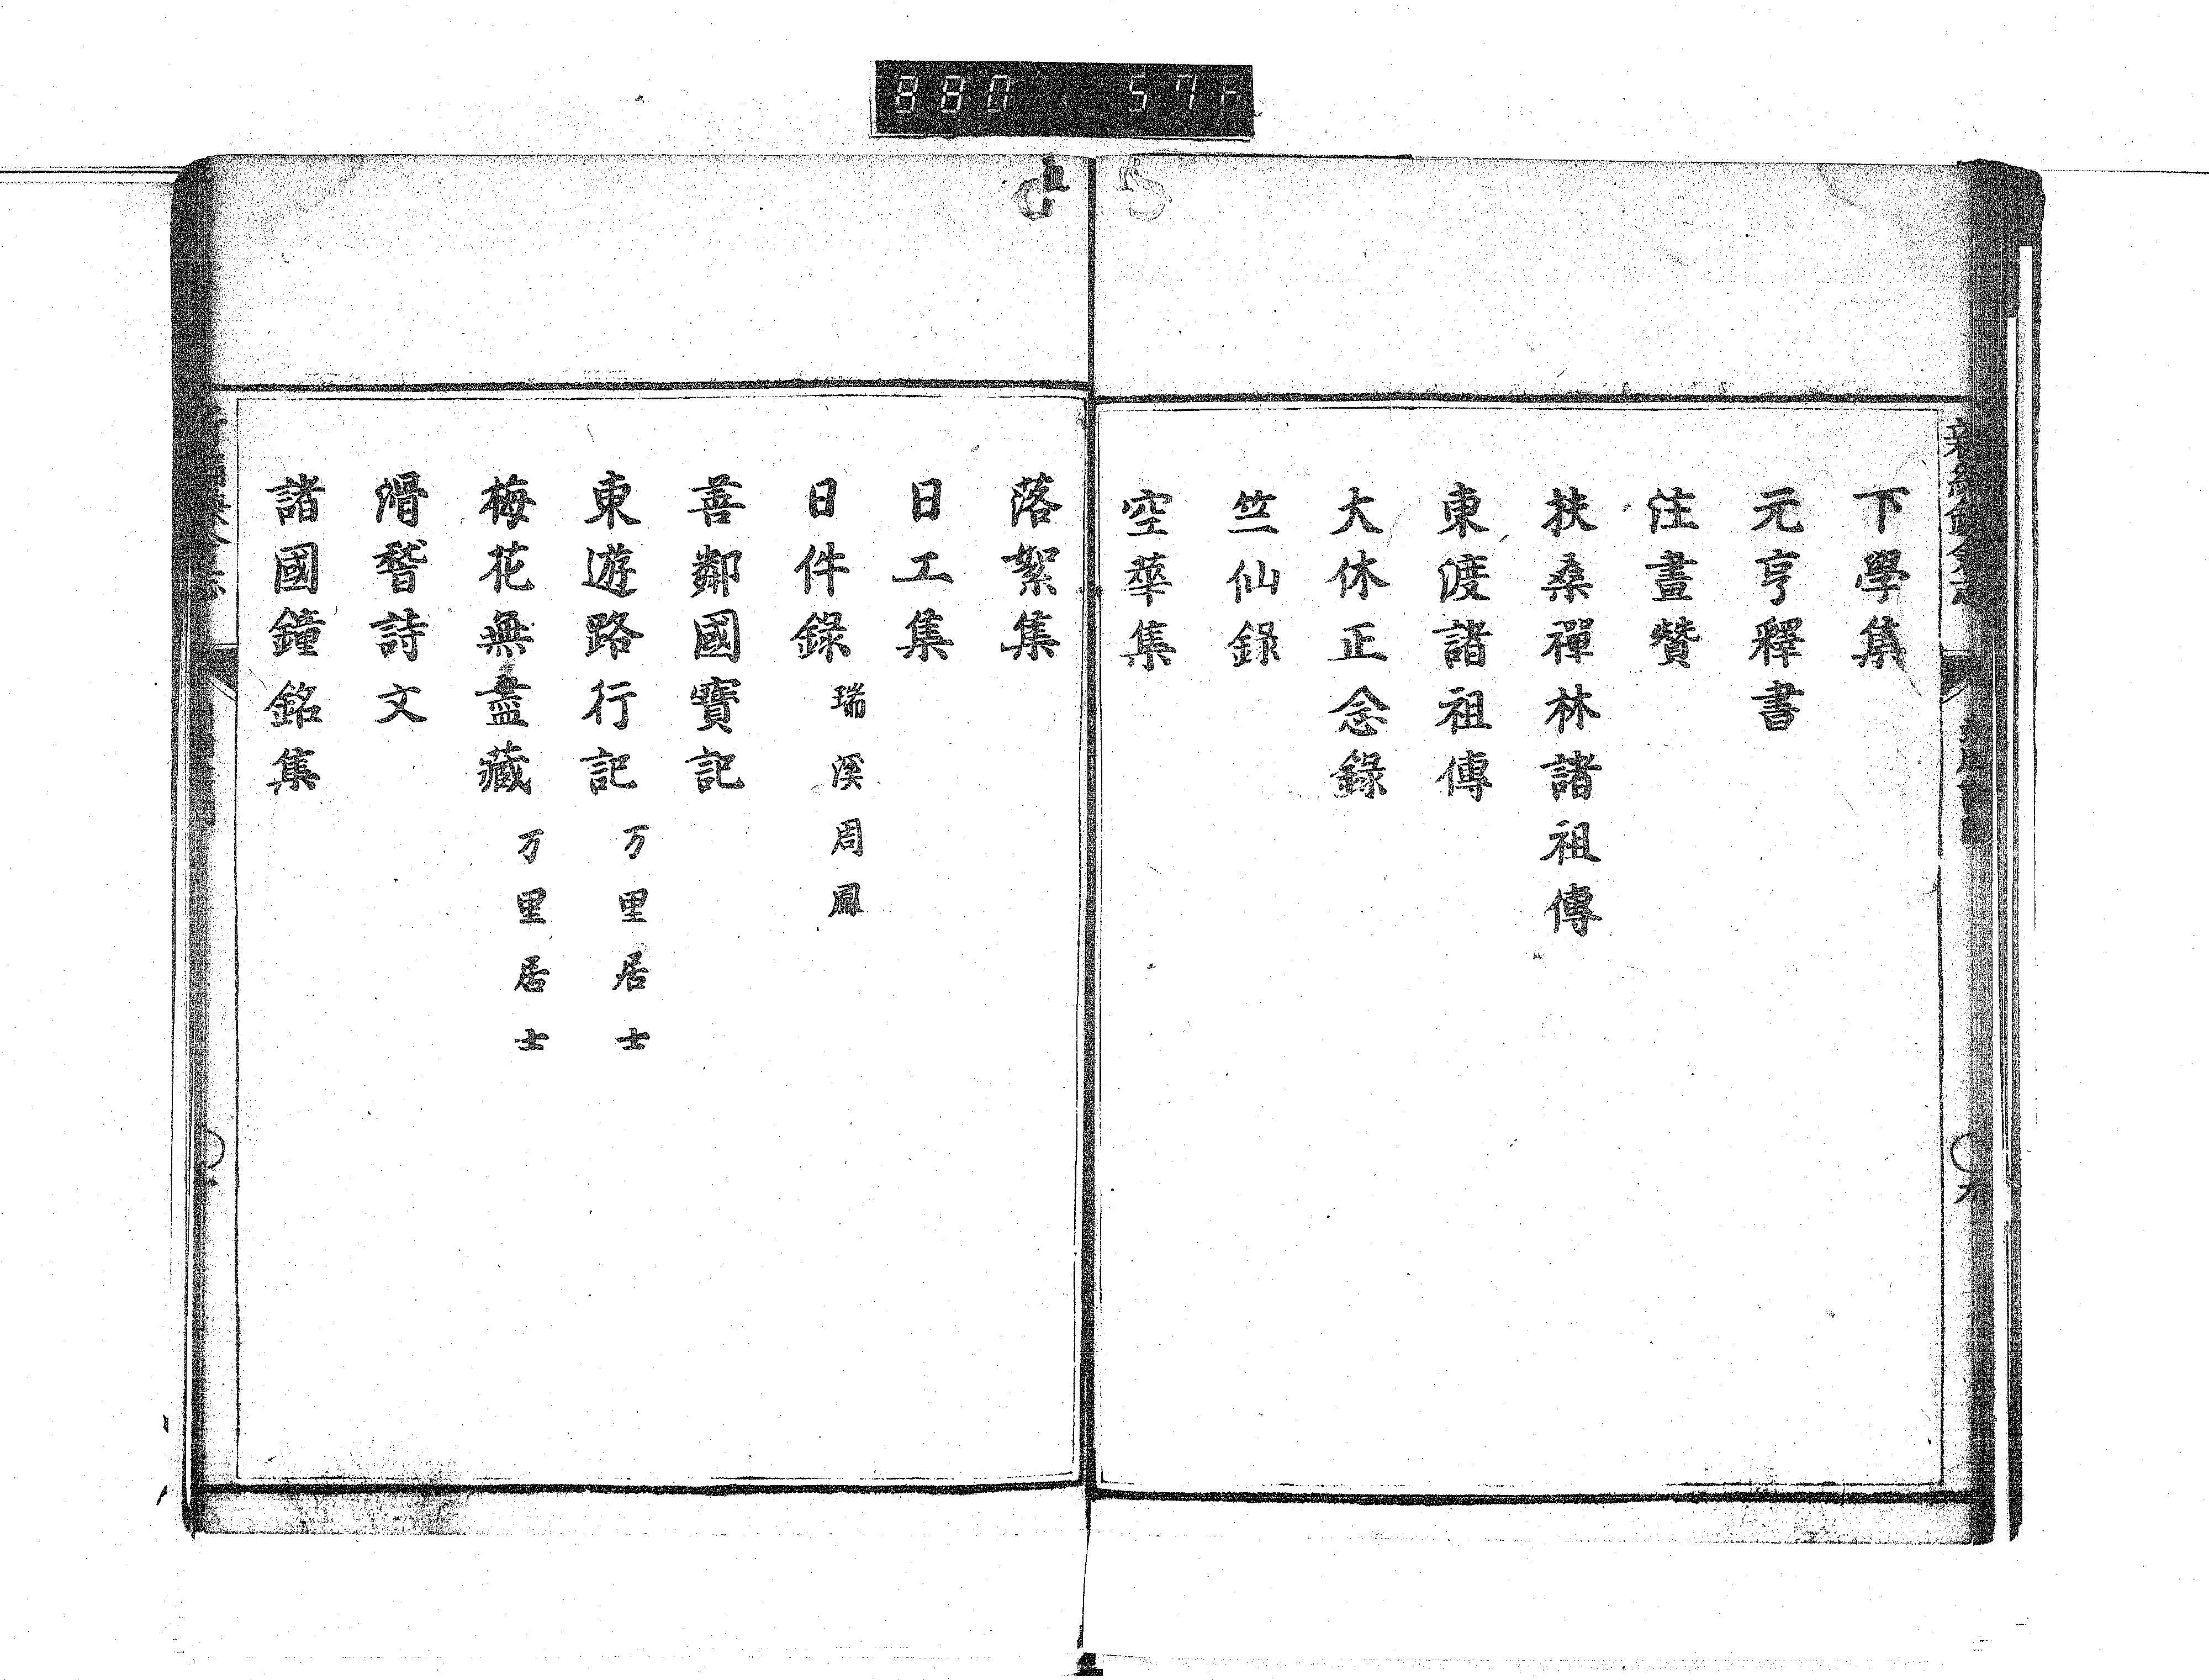 下學集
元亨釋書
注畫贊
扶桑禪林諸祖傳
東渡諸祖傳
大休正念錄
竺仙錄
空華集
落絮集
日工集
日件錄 瑞溪周鳳
善鄰國寶記
東遊路行記 万里居士
梅花無盡藏 万里居士
滑稽詩文
諸國鐘銘集